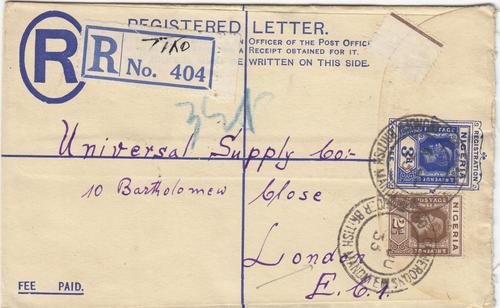 REGISTERED LETTER.
OFFICER OF THE POST OFFICE
A RECEIPT OBTAINED FOR IT.
BE WRITTEN ON THIS SIDE.
R
R TIKO
No. 404
Universal Supply Co:-
10 Bartholomew Close
London
E.C.1.
FEE PAID.
NIGERIA
POSTAGE
REGISTRATION
3D
NIGERIA
POSTAGE
BRITISH